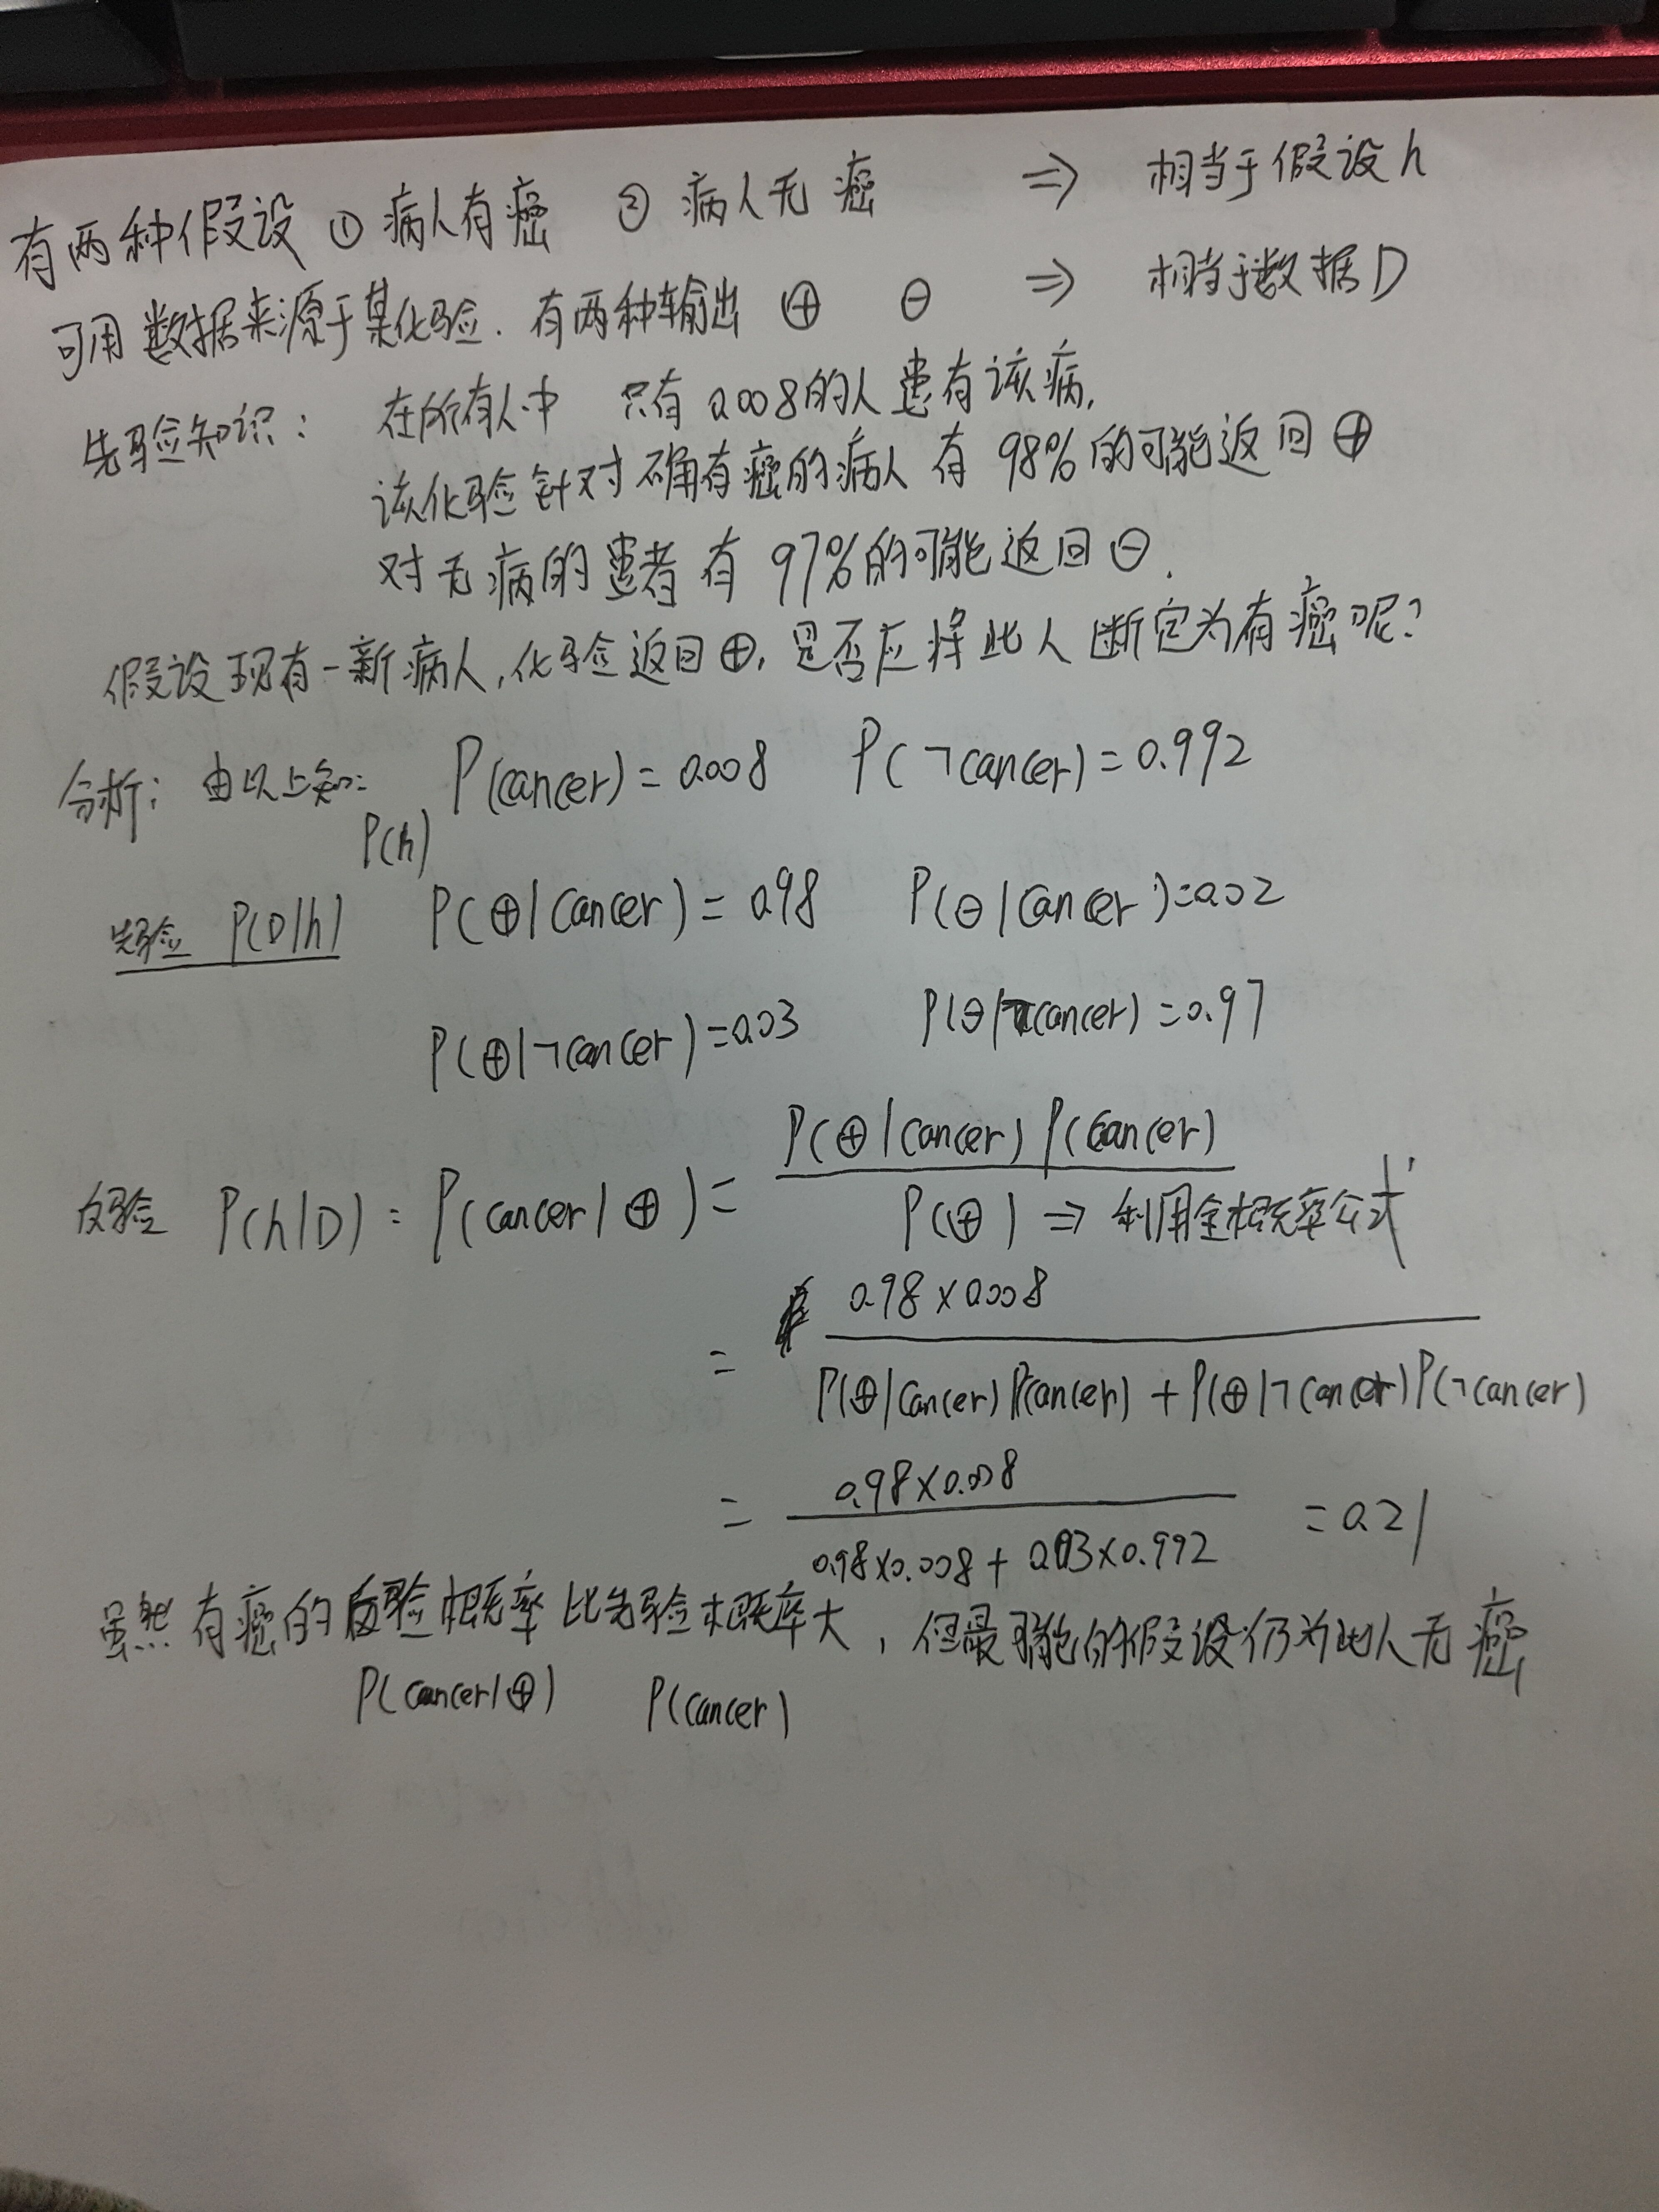 有两种假设 ① 病人有癌 ② 病人无癌 ⇒ 相当于假设h
可用数据来源于某化验. 有两种输出 ⊕ ⊖ ⇒ 相当于数据D
先验知识: 在所有人中 只有0.008的人患有该病,
该化验针对确有癌的病人有98%的可能返回⊕
对无病的患者有97%的可能返回⊖.
假设现有一新病人,化验返回⊕,是否应将此人断定为有癌呢?
分析: 由以上知: P(cancer)=0.008 P(¬cancer)=0.992
P(h)
先验 P(D|h) P(⊕|cancer)=0.98 P(⊖|cancer)=0.02
P(⊕|¬cancer)=0.03 P(⊖|¬cancer)=0.97
P(⊕|cancer)P(cancer)
后验 P(h|D) = P(cancer|⊕) =
P(⊕) ⇒ 利用全概率公式
0.98×0.008
=
P(⊕|cancer)P(cancer) + P(⊕|¬cancer)P(¬cancer)
0.98×0.008
= = 0.21
0.98×0.008 + 0.03×0.992
虽然有癌的后验概率比先验概率大, 但最可能的假设仍为此人无癌
P(cancer|⊕) P(cancer)